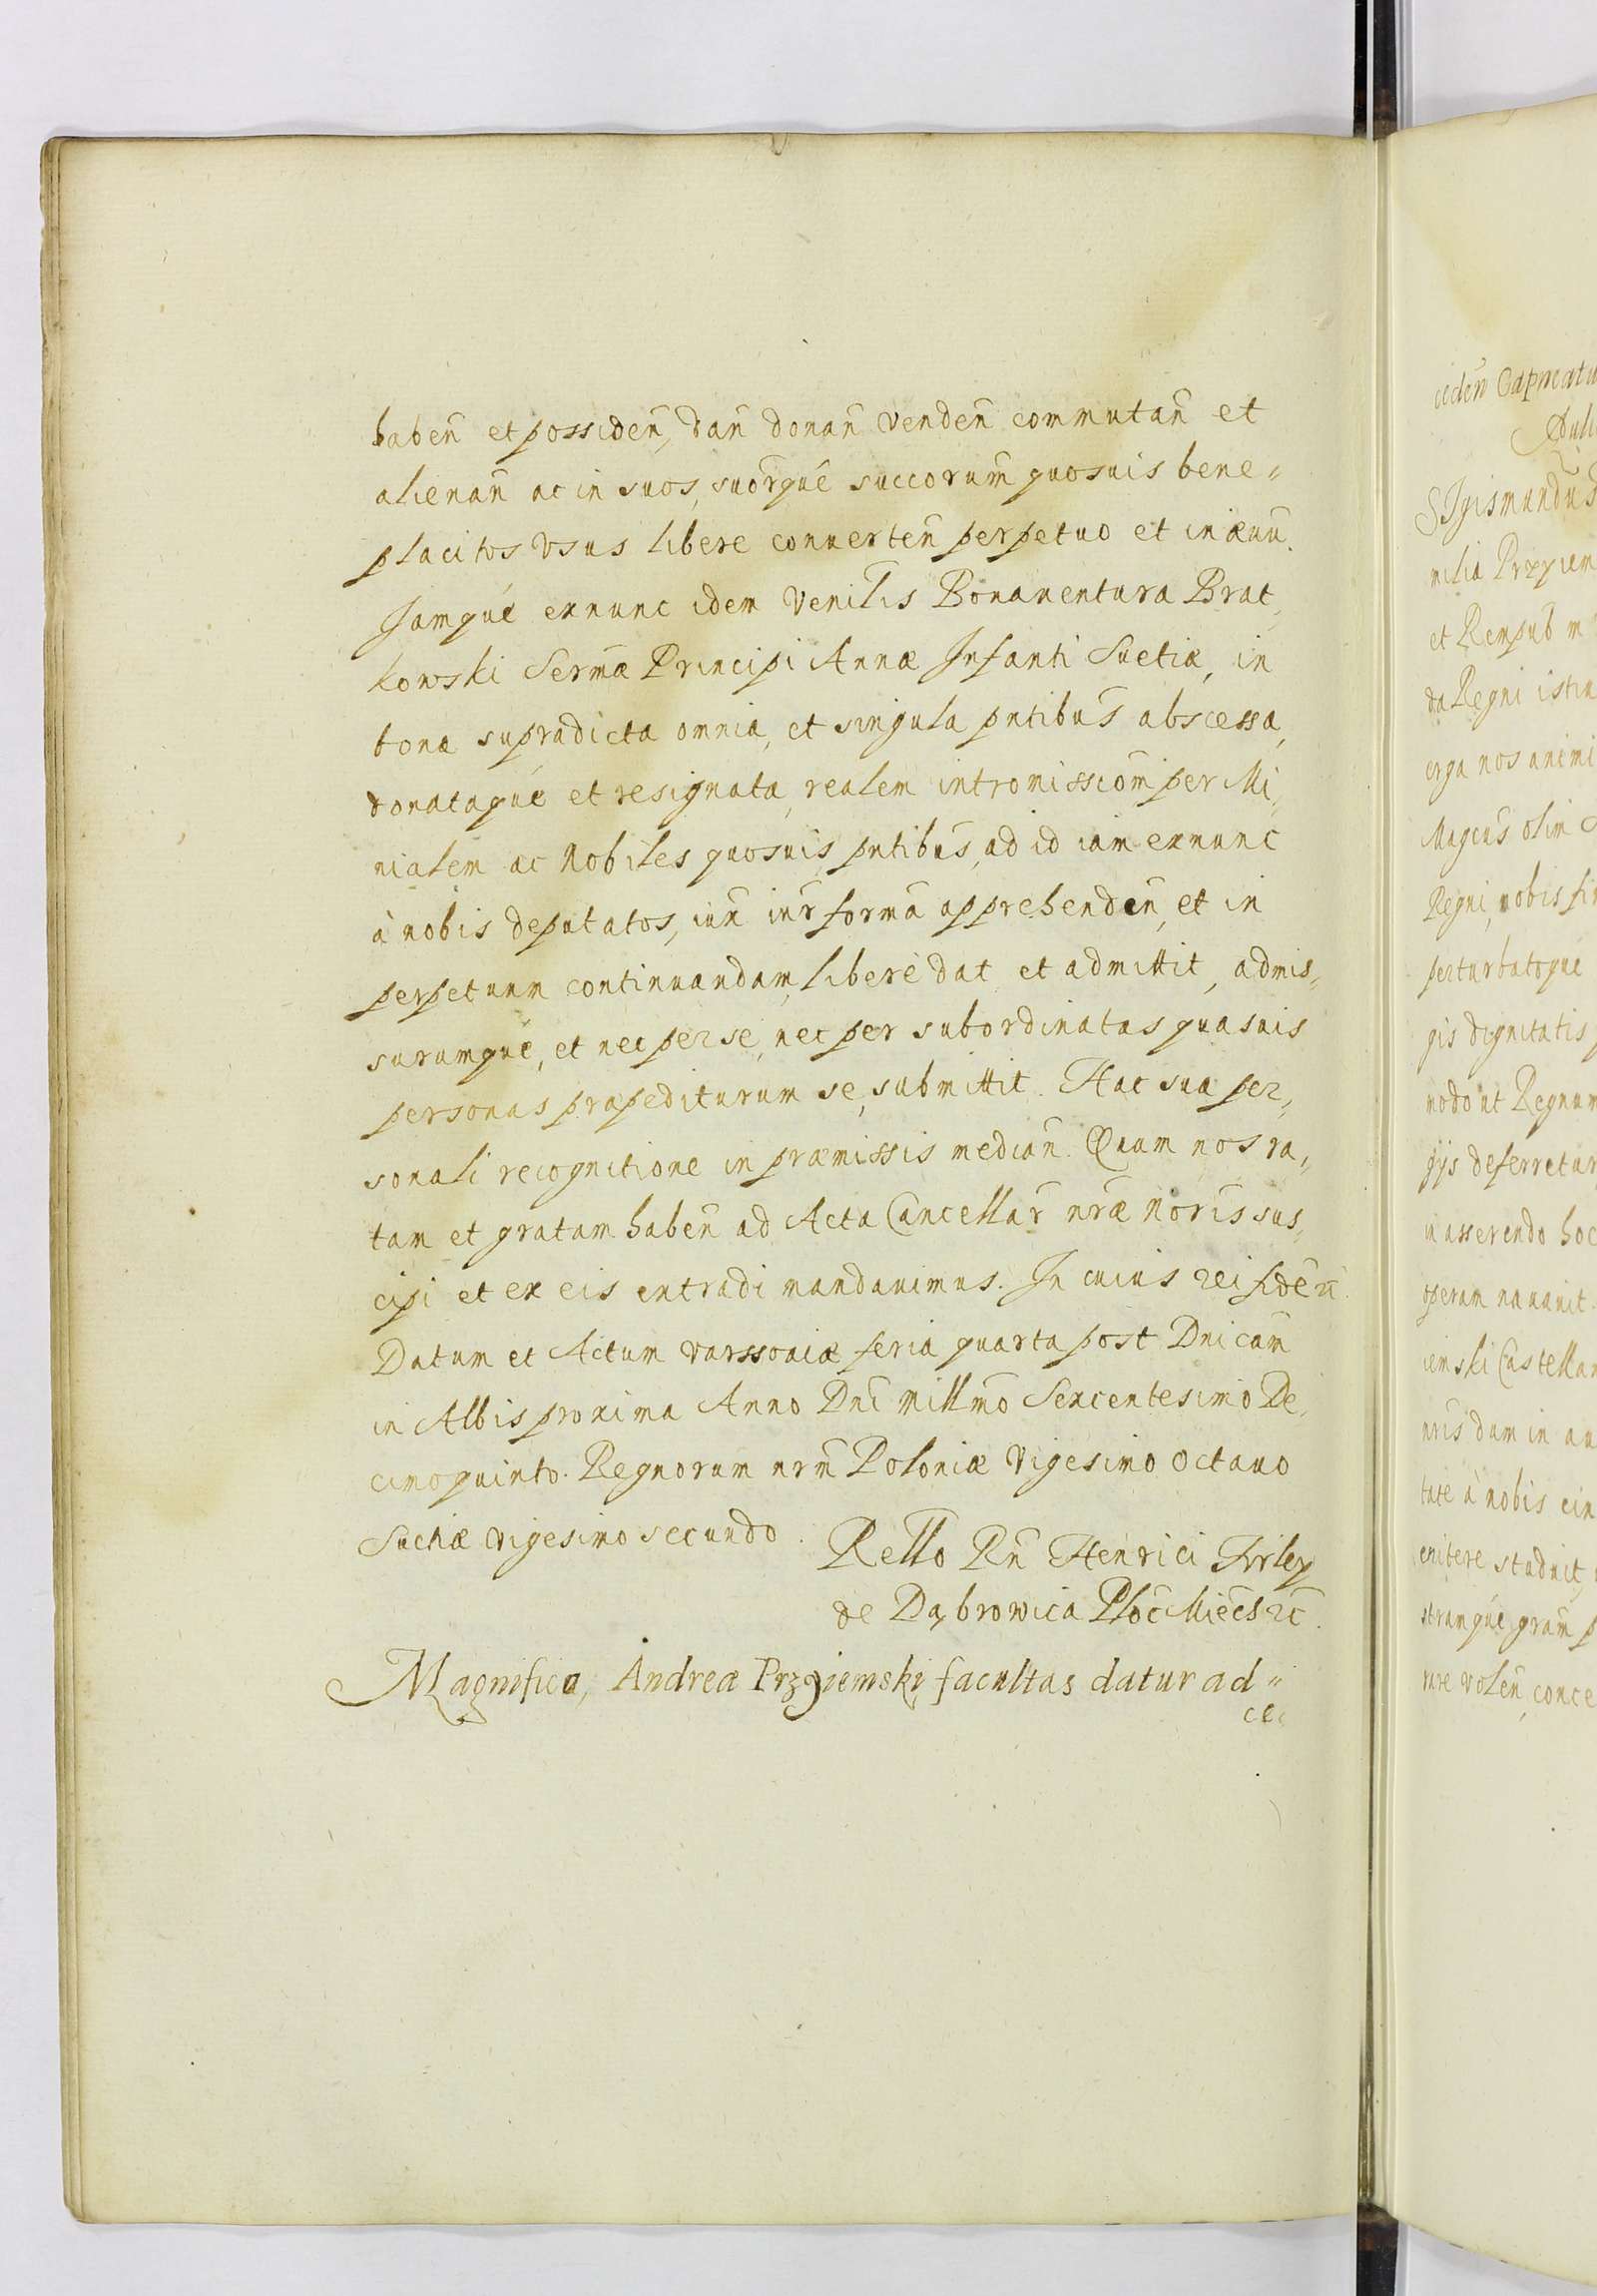 haben̄ et possiden̄, dan̄ donan̄ venden̄ commutan̄ et
alienan̄ ac in suos, suor̄que succorum̄ quosuis bene„
placitos vsus libere conuerten̄ perpetuo et in æuū.
Jamque exnunc idem Venil̄is Bonauentura Brat„
kowski Serm̄æ Principi Annæ Jnfanti Suetiæ, in
bona supradicta omnia, et singula pn̄tibus abscessa,
donataque et resignata, realem intromissiom̄ per Mi„
nialem ac Nobiles quosuis pn̄tibus, ad id iam exnunc
à nobis deputatos, iun̄ iur̄ formā apprehenden̄, et in
perpetuum continuandam, liberè dat et admittit, admis„
surumque, et nec per se, nec per subordinatas quasuis
personas præpediturum se, submittit. Hac sua per„
sonali recognitione in præmissis median̄. Quam nos ra„
tam et gratam haben̄ ad Acta Cancellar̄ nr̄æ Noris̄ sus„
cipi et ex eis extradi mandauimus. Jn cuius rei fidē rc̄.
Datum et Actum varssouiæ feria quarta post Dnicam̄
in Albis proxima Anno Dnī Millm̄o Sexcentesimo De„
cimoquinto. Regnorum nrm̄ Poloniæ Vigesimo Octauo
Sueciæ vigesimo secundo.
Rell̄o Rn̄ Henrici Firley
de Dąbrowica Ploc̄ Miec̄s rc̄.
Magnifico, Andreæ Przyiemski facultas datur ad„
ced
ceden̄ Capneatu
SJgismundus
milia Przyiem
et Rempub m
da Regni istiu
erga nos animi
Magcus olim
Regni, nobis
perturbatoque
gis dignitatis
modo ut Regnum
gijs deferretur
in asserendo hoc
operam nauauit
iemski Castellan
nris dum in au
tate à nobis
enitere studuit,
stramque gram̄ p
rare volen̄, conce